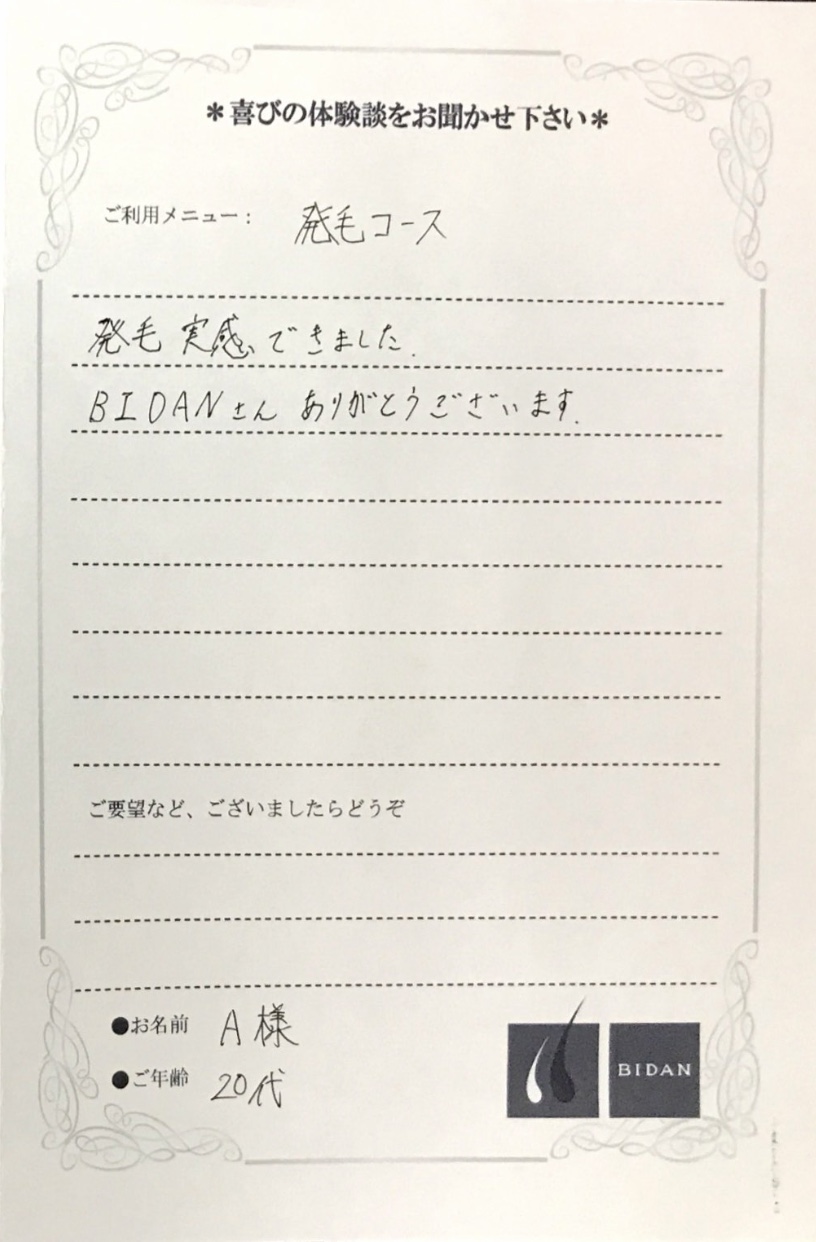 ＊喜びの体験談をお聞かせ下さい＊
ご利用メニュー： 発毛コース
発毛 実感、できました.
BIDANさん ありがとうございます.
ご要望など、ございましたらどうぞ
●お名前 A様
●ご年齢 20代
BIDAN